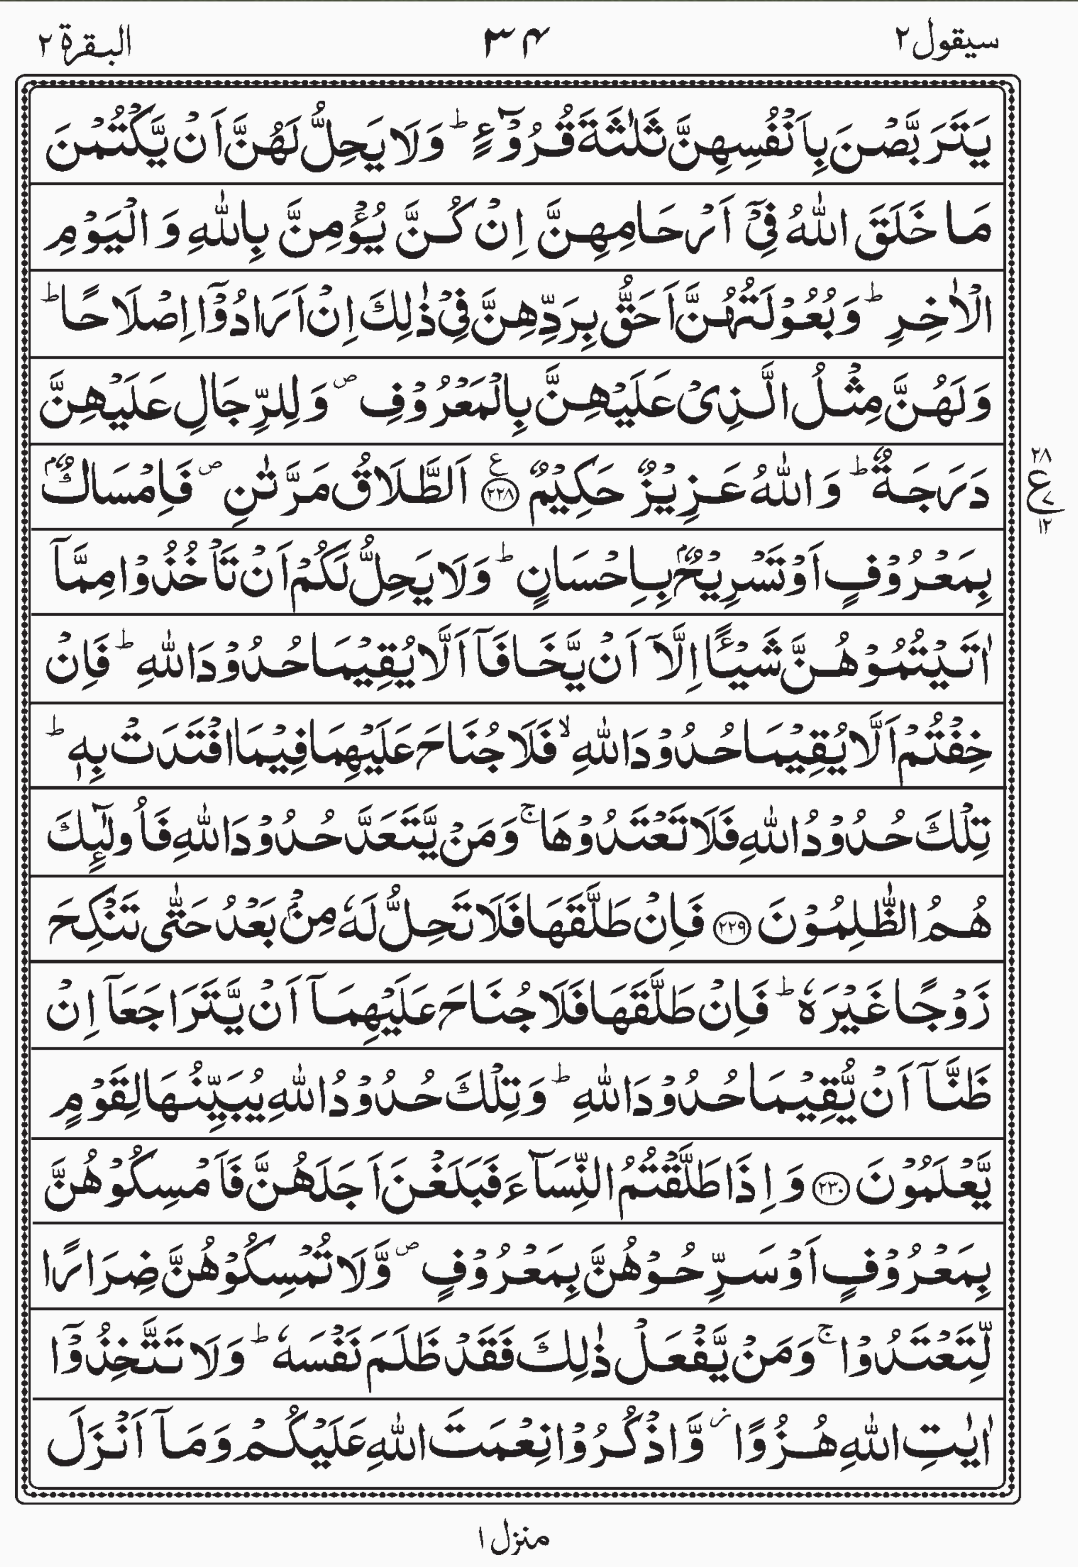 سیقول ٢
٣٤
البقرة ٢
يَتَرَبَّصْنَ بِاَنْفُسِهِنَّ ثَلٰثَةَ قُرُوْٓءٍ ؕ وَلَا يَحِلُّ لَهُنَّ اَنْ يَّكْتُمْنَ
مَا خَلَقَ اللّٰهُ فِيْٓ اَرْحَامِهِنَّ اِنْ كُنَّ يُؤْمِنَّ بِاللّٰهِ وَ الْيَوْمِ
الْاٰخِرِ ؕ وَبُعُوْلَتُهُنَّ اَحَقُّ بِرَدِّهِنَّ فِيْ ذٰلِكَ اِنْ اَرَادُوْٓا اِصْلَاحًا ؕ
وَلَهُنَّ مِثْلُ الَّذِيْ عَلَيْهِنَّ بِالْمَعْرُوْفِ ۪ وَلِلرِّجَالِ عَلَيْهِنَّ
دَرَجَةٌ ؕ وَ اللّٰهُ عَزِيْزٌ حَكِيْمٌ ع ﴿٢٢٨﴾ اَلطَّلَاقُ مَرَّتٰنِ ۪ فَاِمْسَاكٌۢ
٢٨
ع
١٢
بِمَعْرُوْفٍ اَوْ تَسْرِيْحٌۢ بِاِحْسَانٍ ؕ وَلَا يَحِلُّ لَكُمْ اَنْ تَاْخُذُوْا مِمَّآ
اٰتَيْتُمُوْهُنَّ شَيْـًٔا اِلَّآ اَنْ يَّخَافَآ اَلَّا يُقِيْمَا حُدُوْدَ اللّٰهِ ؕ فَاِنْ
خِفْتُمْ اَلَّا يُقِيْمَا حُدُوْدَ اللّٰهِ ۙ فَلَا جُنَاحَ عَلَيْهِمَا فِيْمَا افْتَدَتْ بِهٖ ؕ
تِلْكَ حُدُوْدُ اللّٰهِ فَلَا تَعْتَدُوْهَا ۚ وَمَنْ يَّتَعَدَّ حُدُوْدَ اللّٰهِ فَاُولٰٓئِكَ
هُمُ الظّٰلِمُوْنَ ﴿٢٢٩﴾ فَاِنْ طَلَّقَهَا فَلَا تَحِلُّ لَهٗ مِنْۢ بَعْدُ حَتّٰى تَنْكِحَ
زَوْجًا غَيْرَهٗ ؕ فَاِنْ طَلَّقَهَا فَلَا جُنَاحَ عَلَيْهِمَآ اَنْ يَّتَرَاجَعَآ اِنْ
ظَنَّآ اَنْ يُّقِيْمَا حُدُوْدَ اللّٰهِ ؕ وَتِلْكَ حُدُوْدُ اللّٰهِ يُبَيِّنُهَا لِقَوْمٍ
يَّعْلَمُوْنَ ﴿٢٣٠﴾ وَ اِذَا طَلَّقْتُمُ النِّسَآءَ فَبَلَغْنَ اَجَلَهُنَّ فَاَمْسِكُوْهُنَّ
بِمَعْرُوْفٍ اَوْ سَرِّحُوْهُنَّ بِمَعْرُوْفٍ ۪ وَّلَا تُمْسِكُوْهُنَّ ضِرَارًا
لِّتَعْتَدُوْا ۚ وَمَنْ يَّفْعَلْ ذٰلِكَ فَقَدْ ظَلَمَ نَفْسَهٗ ؕ وَلَا تَتَّخِذُوْٓا
اٰيٰتِ اللّٰهِ هُزُوًا ؗ وَّاذْكُرُوْا نِعْمَتَ اللّٰهِ عَلَيْكُمْ وَمَآ اَنْزَلَ
منزل ١